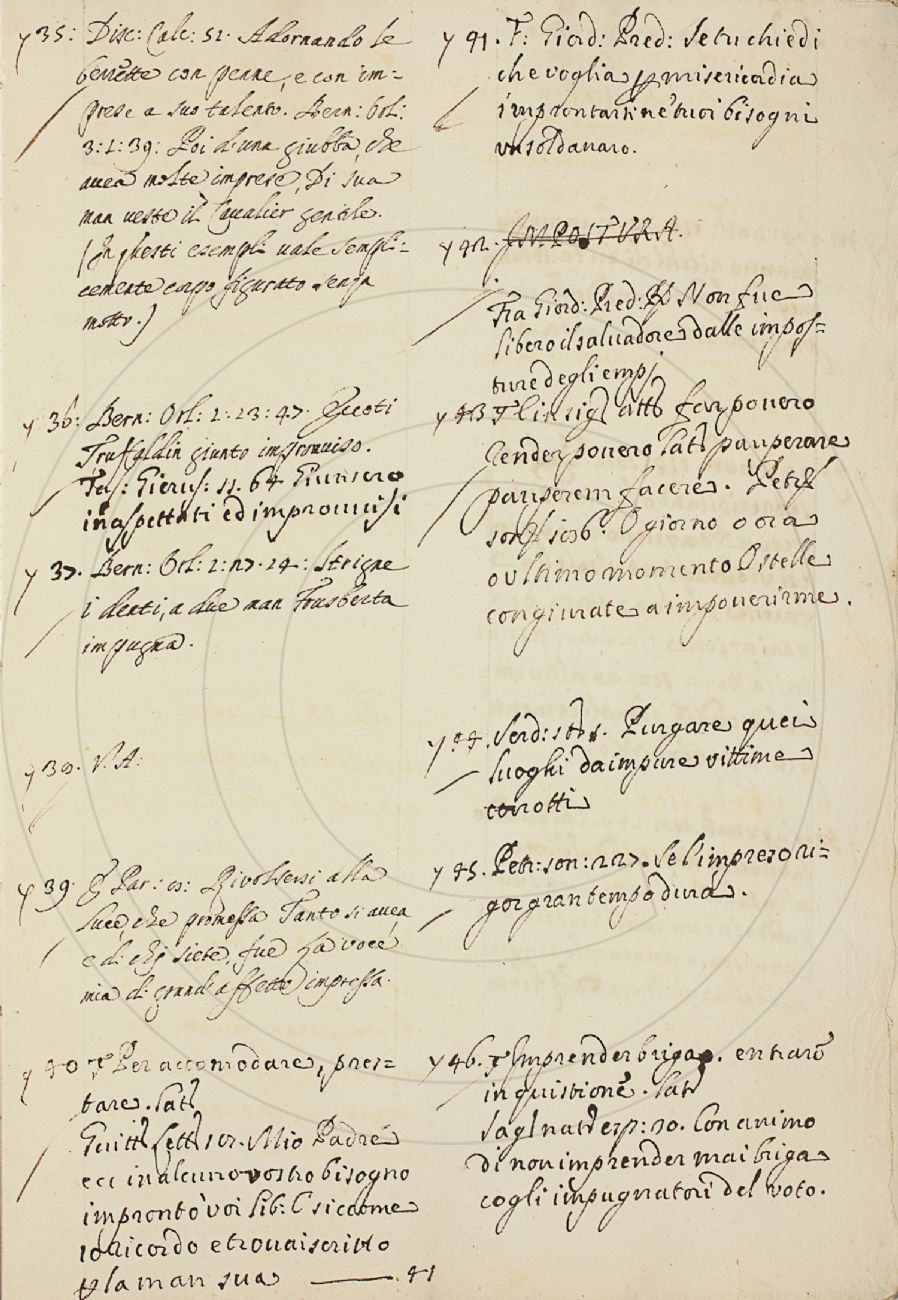 γ 35: Disc: Calc: 51. Adornando le
berrette con penne, e con im=
prese a suo talento. Bern: Orl:
3:1:39: Poi d'una giubba, che
avea molte imprese, Di sua
man veste il Cavalier gentile.
(In questi esempli vale sempli=
cemente corpo figurato senza
motto.)
γ 36: Bern: Orl: 2:23:47. Eccoti
Truffaldin giunto improuuiso.
Tas: Gierus: 11. 64 Giunsero
inaspettati ed improuuisi
γ 37. Bern: Orl: 1:27.24: Strigne
i denti, a due man Frusberta
impugna.
γ 38. V. A:
γ 39. Par: 8: Rivolsersi alla
luce, che promessa Tanto si avea,
e di chi siete, fue La voce
mia di grande affetto impressa.
γ 40 Per accomodare, pres=
tare. Lat
Guitt Lett Mio Padre
ecc in alcuno vostro bisogno
improntò voi lib: C siccome
io ricordo e trovai scritto
la man sua ——— 41
γ 41. F: Giord: Pred: Se tu chiedi
che voglia p misericordia
improntarti ne' tuoi bisogni
un sol danaro.
γ 42. IMPOSTURA.
Fra Giord: Pred: Non fue
libero il salvadore dalle impos=
ture degli empj
γ 43 far povero
render povero Lat pauperare
pauperem facere. Petr
son O giorno o ora
o ultimo momento O stelle
congiurate a impouerirme.
γ 44. Serd: st Purgare quei
luoghi da impure vittime
corrotti
γ 45. Petr: son: 227. Se l'impreso ri=
gor gran tempo dura.
γ 46. Imprender briga. entrare
in quistione. Lat
Sag nat esp: 20. Con animo
di non imprender mai briga
cogli impugnatori del voto.